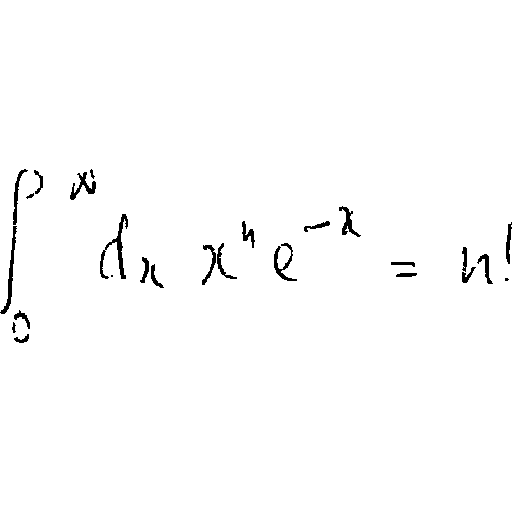 ∫₀^∞ dx xⁿ e^{-x} = n!